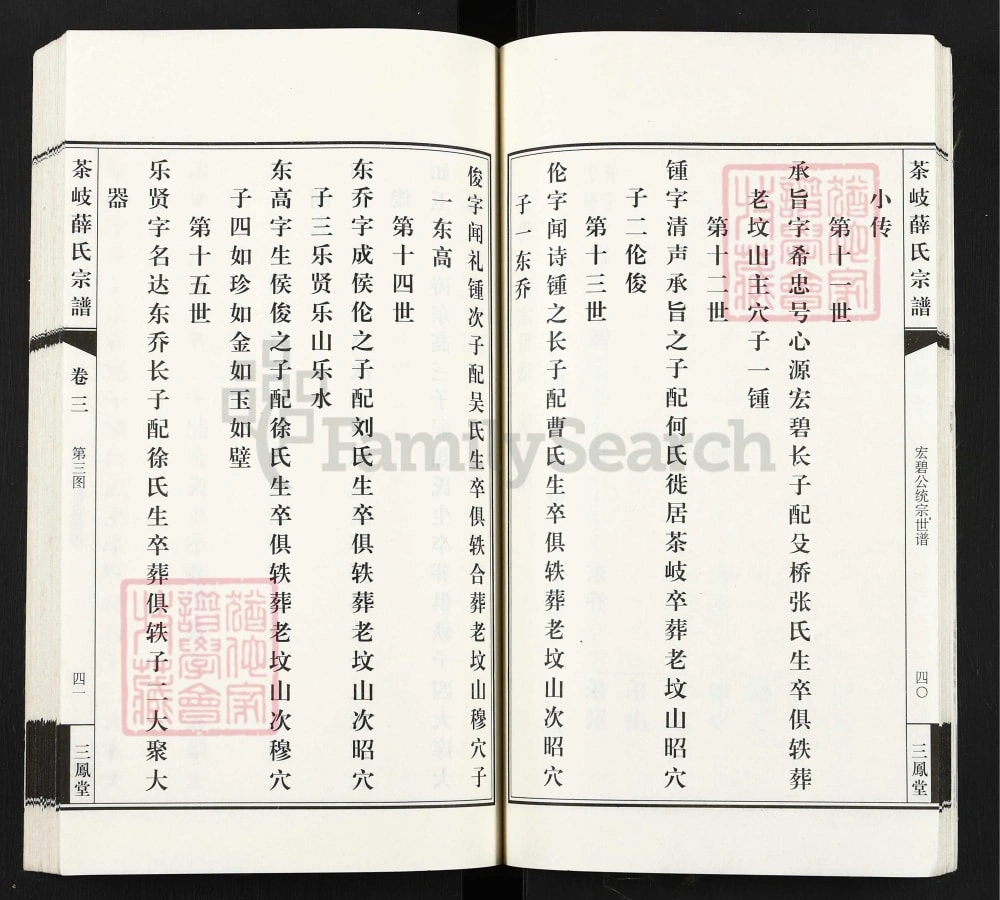 茶岐薛氏宗譜
宏碧公统宗世谱
四〇
三鳳堂
小传
第十一世
承旨字希忠号心源宏碧长子配殳桥张氏生卒俱轶葬
老坟山主穴子一锺
第十二世
锺字清声承旨之子配何氏徙居茶岐卒葬老坟山昭穴
子二伦俊
第十三世
伦字闻诗锺之长子配曹氏生卒俱轶葬老坟山次昭穴
子一东乔
俊字闻礼锺次子配吴氏生卒俱轶合葬老坟山穆穴子
一东高
第十四世
东乔字成侯伦之子配刘氏生卒俱轶葬老坟山次昭穴
子三乐贤乐山乐水
东高字生侯俊之子配徐氏生卒俱轶葬老坟山次穆穴
子四如珍如金如玉如璧
第十五世
乐贤字名达东乔长子配徐氏生卒葬俱轶子二大聚大
器
茶岐薛氏宗譜
卷三
第三图
四一
三鳳堂
FamilySearch